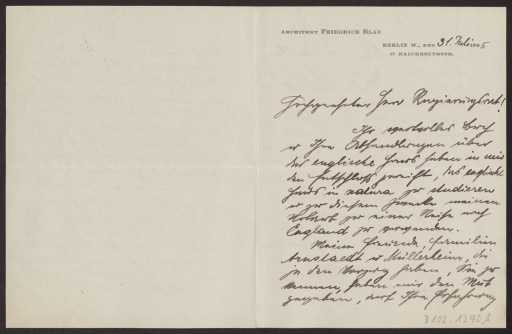 ARCHITEKT FRIEDRICH BLAU
BERLIN W., DEN 31. Juli 1905
17 KALCKREUTHSTR.
Hochgeehrter Herr Regierungsrat!
Ihr wertvolles Buch
u Ihre Abhandlungen über
das englische Haus haben in mir
den Entschluss gereift, das englische
Haus in natura zu studieren
u zu diesem Zwecke meinen
Urlaub zu einer Reise nach
England zu verwenden.
Meine Freunde, Familien
Arnstaedt u Müllerheim, die
ja den Vorzug haben, Sie zu
kennen, haben mir den Mut
gegeben, auf Ihre Erfahrung